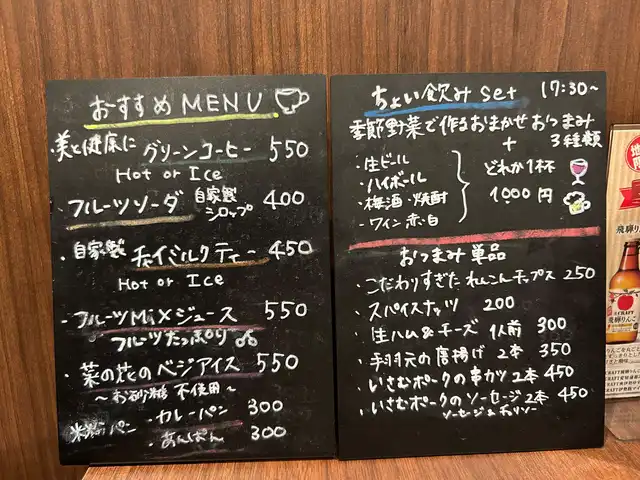 おすすめ MENU
・美と健康に グリーンコーヒー 550
Hot or Ice
・フルーツソーダ 自家製シロップ 400
・自家製 チャイミルクティー 450
Hot or Ice
・フルーツMixジュース 550
フルーツたっぷり
・菜の花のベジアイス 550
～お砂糖不使用～
米粉パン ・カレーパン 300
・あんぱん 300
ちょい飲みset 17:30～
季節野菜で作るおまかせおつまみ
+ 3種類
・生ビール
・ハイボール
・梅酒・焼酎
・ワイン 赤・白
どれか1杯
1000円
おつまみ単品
・こだわりすぎたれんこんチップス 250
・スパイスナッツ 200
・生ハム&チーズ 1人前 300
・手羽元の唐揚げ 2本 350
・いさむポークの串カツ 2本 450
・いさむポークのソーセージ 2本 450
ソーセージ&チョリソー
飛騨りん
CRAFT
飛騨りんご